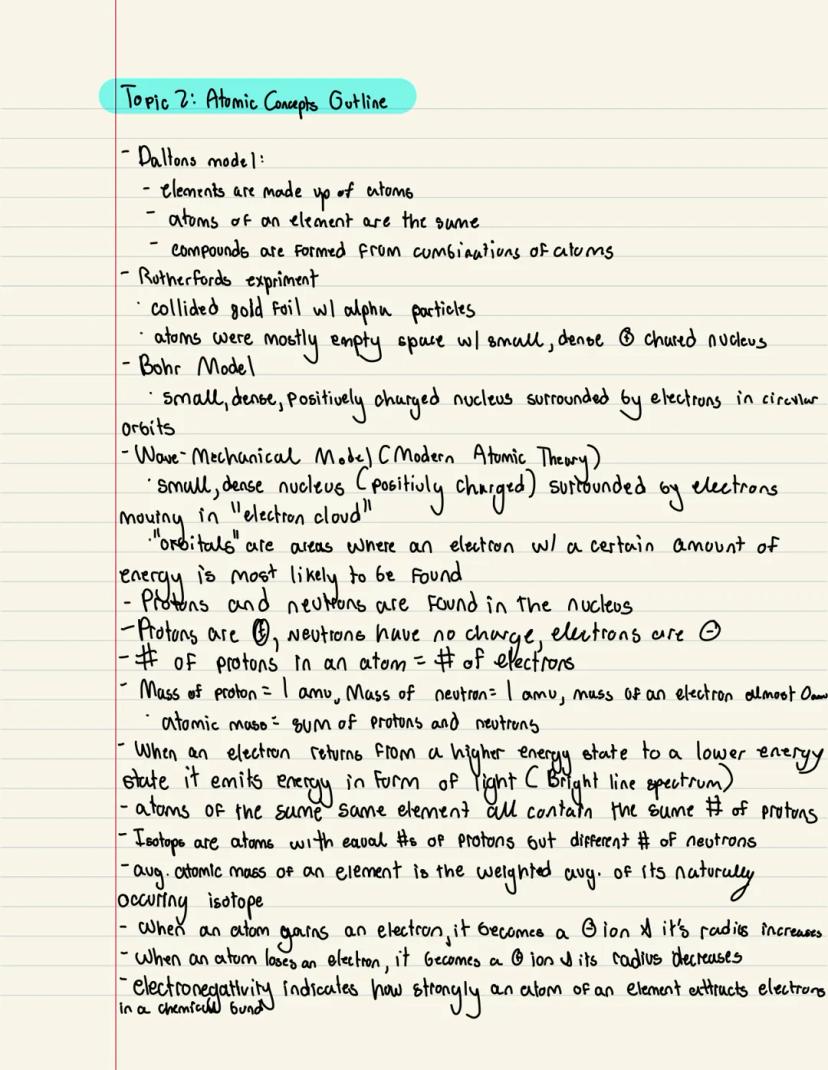 Topic 2: Atomic Concepts Outline
- Daltons model:
- elements are made up of atoms
- atoms of an element are the same
- compounds are formed from combinations of atoms
- Rutherfords expriment
· collided gold foil w/ alpha particles
· atoms were mostly empty space w/ small, dense ⊕ chared nucleus
- Bohr Model
· small, dense, positively charged nucleus surrounded by electrons in circular
orbits
- Wave-Mechanical Model (Modern Atomic Theory)
· small, dense nucleus (positivly charged) surrounded by electrons
moving in "electron cloud"
· "orbitals" are areas where an electron w/ a certain amount of
energy is most likely to be found
- Protons and neutrons are found in the nucleus
- Protons are ⊕, neutrons have no charge, electrons are ⊖
- # of protons in an atom = # of electrons
- Mass of proton = 1 amu, Mass of neutron = 1 amu, mass of an electron almost 0amu
· atomic mass = sum of protons and neutrons
- When an electron returns from a higher energy state to a lower energy
state it emits energy in form of light (Bright line spectrum)
- atoms of the same same element all contain the same # of protons
- Isotops are atoms with equal #s of protons but different # of neutrons
- avg. atomic mass of an element is the weighted avg. of its naturally
occuring isotope
- when an atom gains an electron, it becomes a ⊖ ion & it's radius increases
- when an atom loses an electron, it becomes a ⊕ ion & its radius decreases
- electronegativity indicates how strongly an atom of an element attracts electrons
in a chemical bond